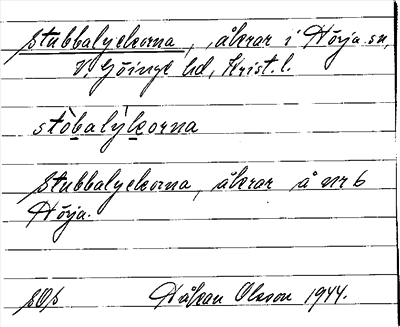 Stubbalyckorna, åkrar i Hörja sn,
V. Göinge hd, Krist. l.
stòbalỳkorna
Stubbalyckorna, åkrar å nr 6
Hörja.
Håkan Olsson 1944.